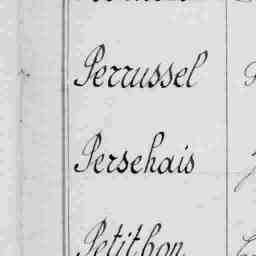 Perrussel
Persehais
Petitbon